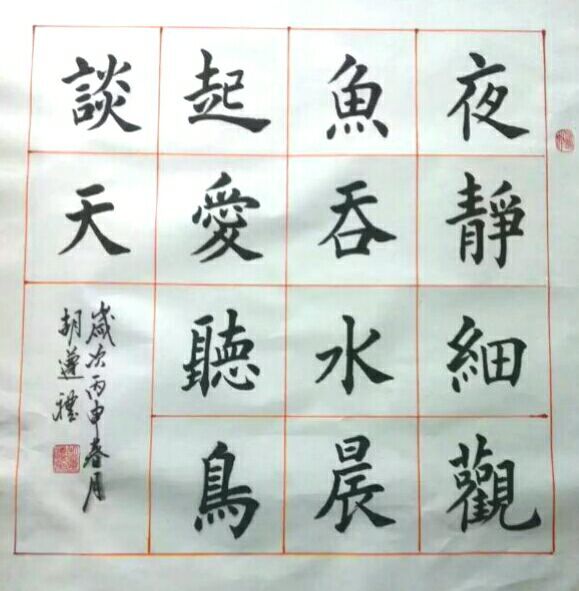 夜靜細觀
魚吞水晨
起愛聽鳥
談天
歲次丙申春月
胡蓮禮